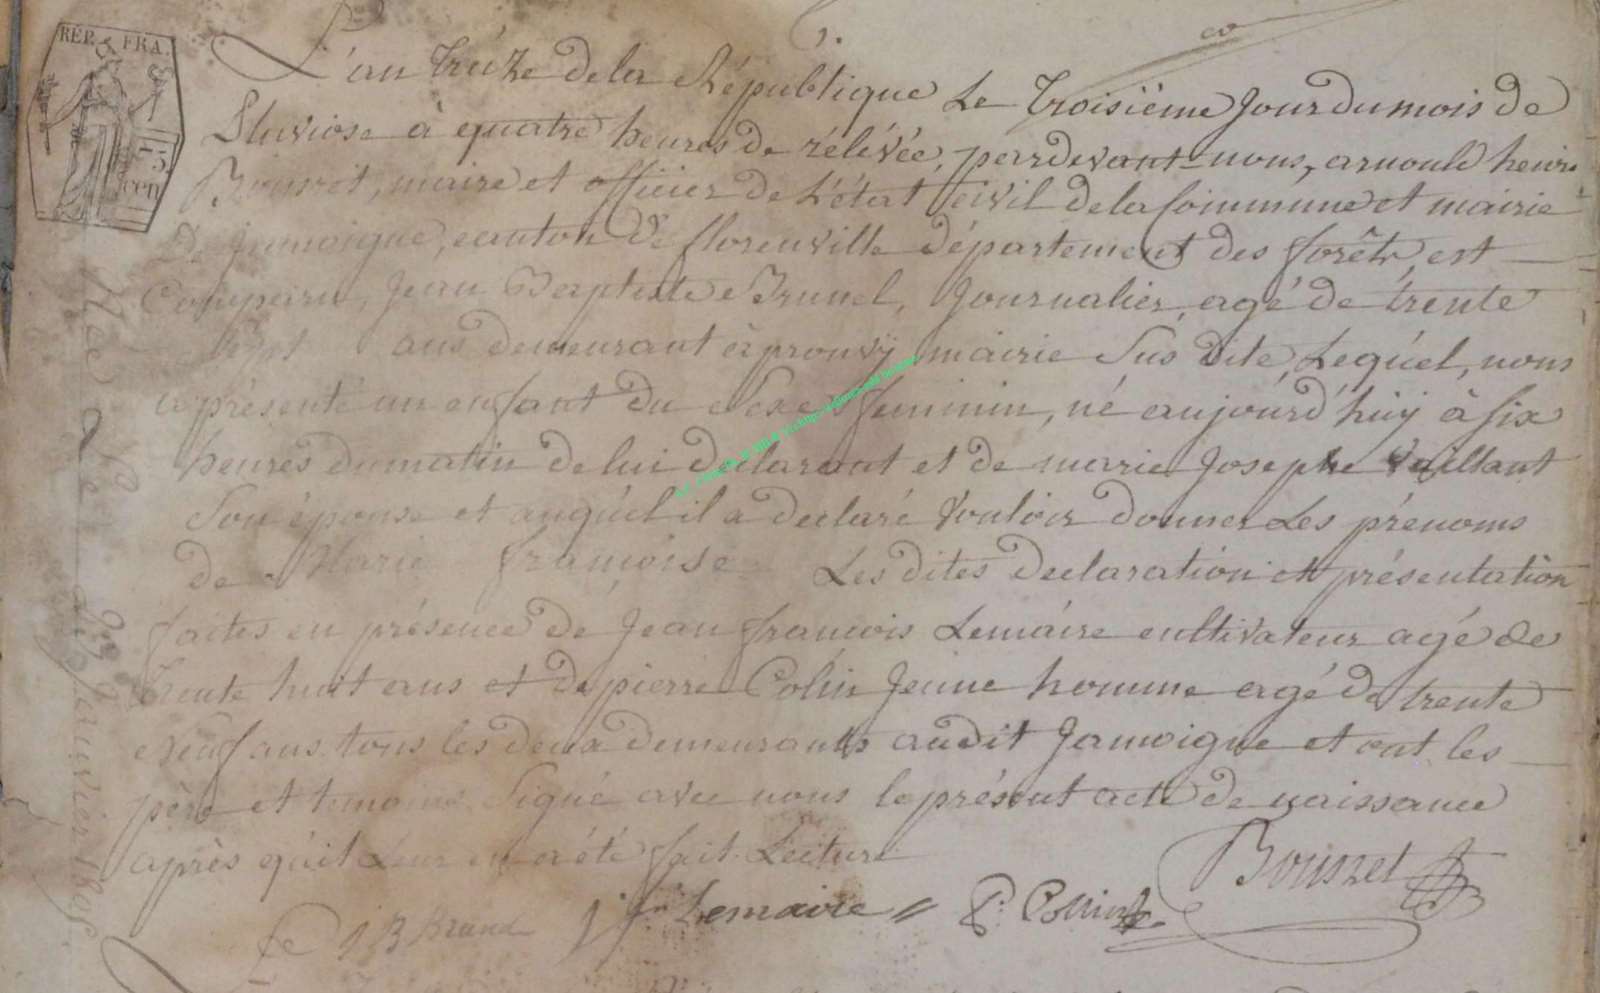 RÉP. FRA.
L'an treize de la République Le troisiéme Jour du mois de
Pluviose à quatre heures de rélévée, pardevant-nous, arnould henri
maire et officier de L'état Civil de la Commune et mairie
De Jamoigne, canton de florenville département des forêts est
Comparu, Jean Baptiste Brunel, Journalier, agé de trente
sept ans demeurant à prouvÿ mairie Sus dite, Lequel, nous
a présenté un enfant du Sexe feminin, né aujourd'huÿ à six
heures du matin de lui declarant et de marie Josephe Vaillant
Son épouse et auquél il a declaré Vouloir donner Les prénoms
de Marie françoise Les dites declaration et présentation
faites en présence de Jean françois Lemaire cultivateur agé de
trente huit ans et de pierre Colin Jeune homme agé de trente
neuf ans tous les deux demeurants audit Jamoigne et ont les
père et temoins Signé avec nous le présent acte de naissance
après qu'il Leur en a été fait Lecture
Lemaire P. Collin
23 Janvier 1805